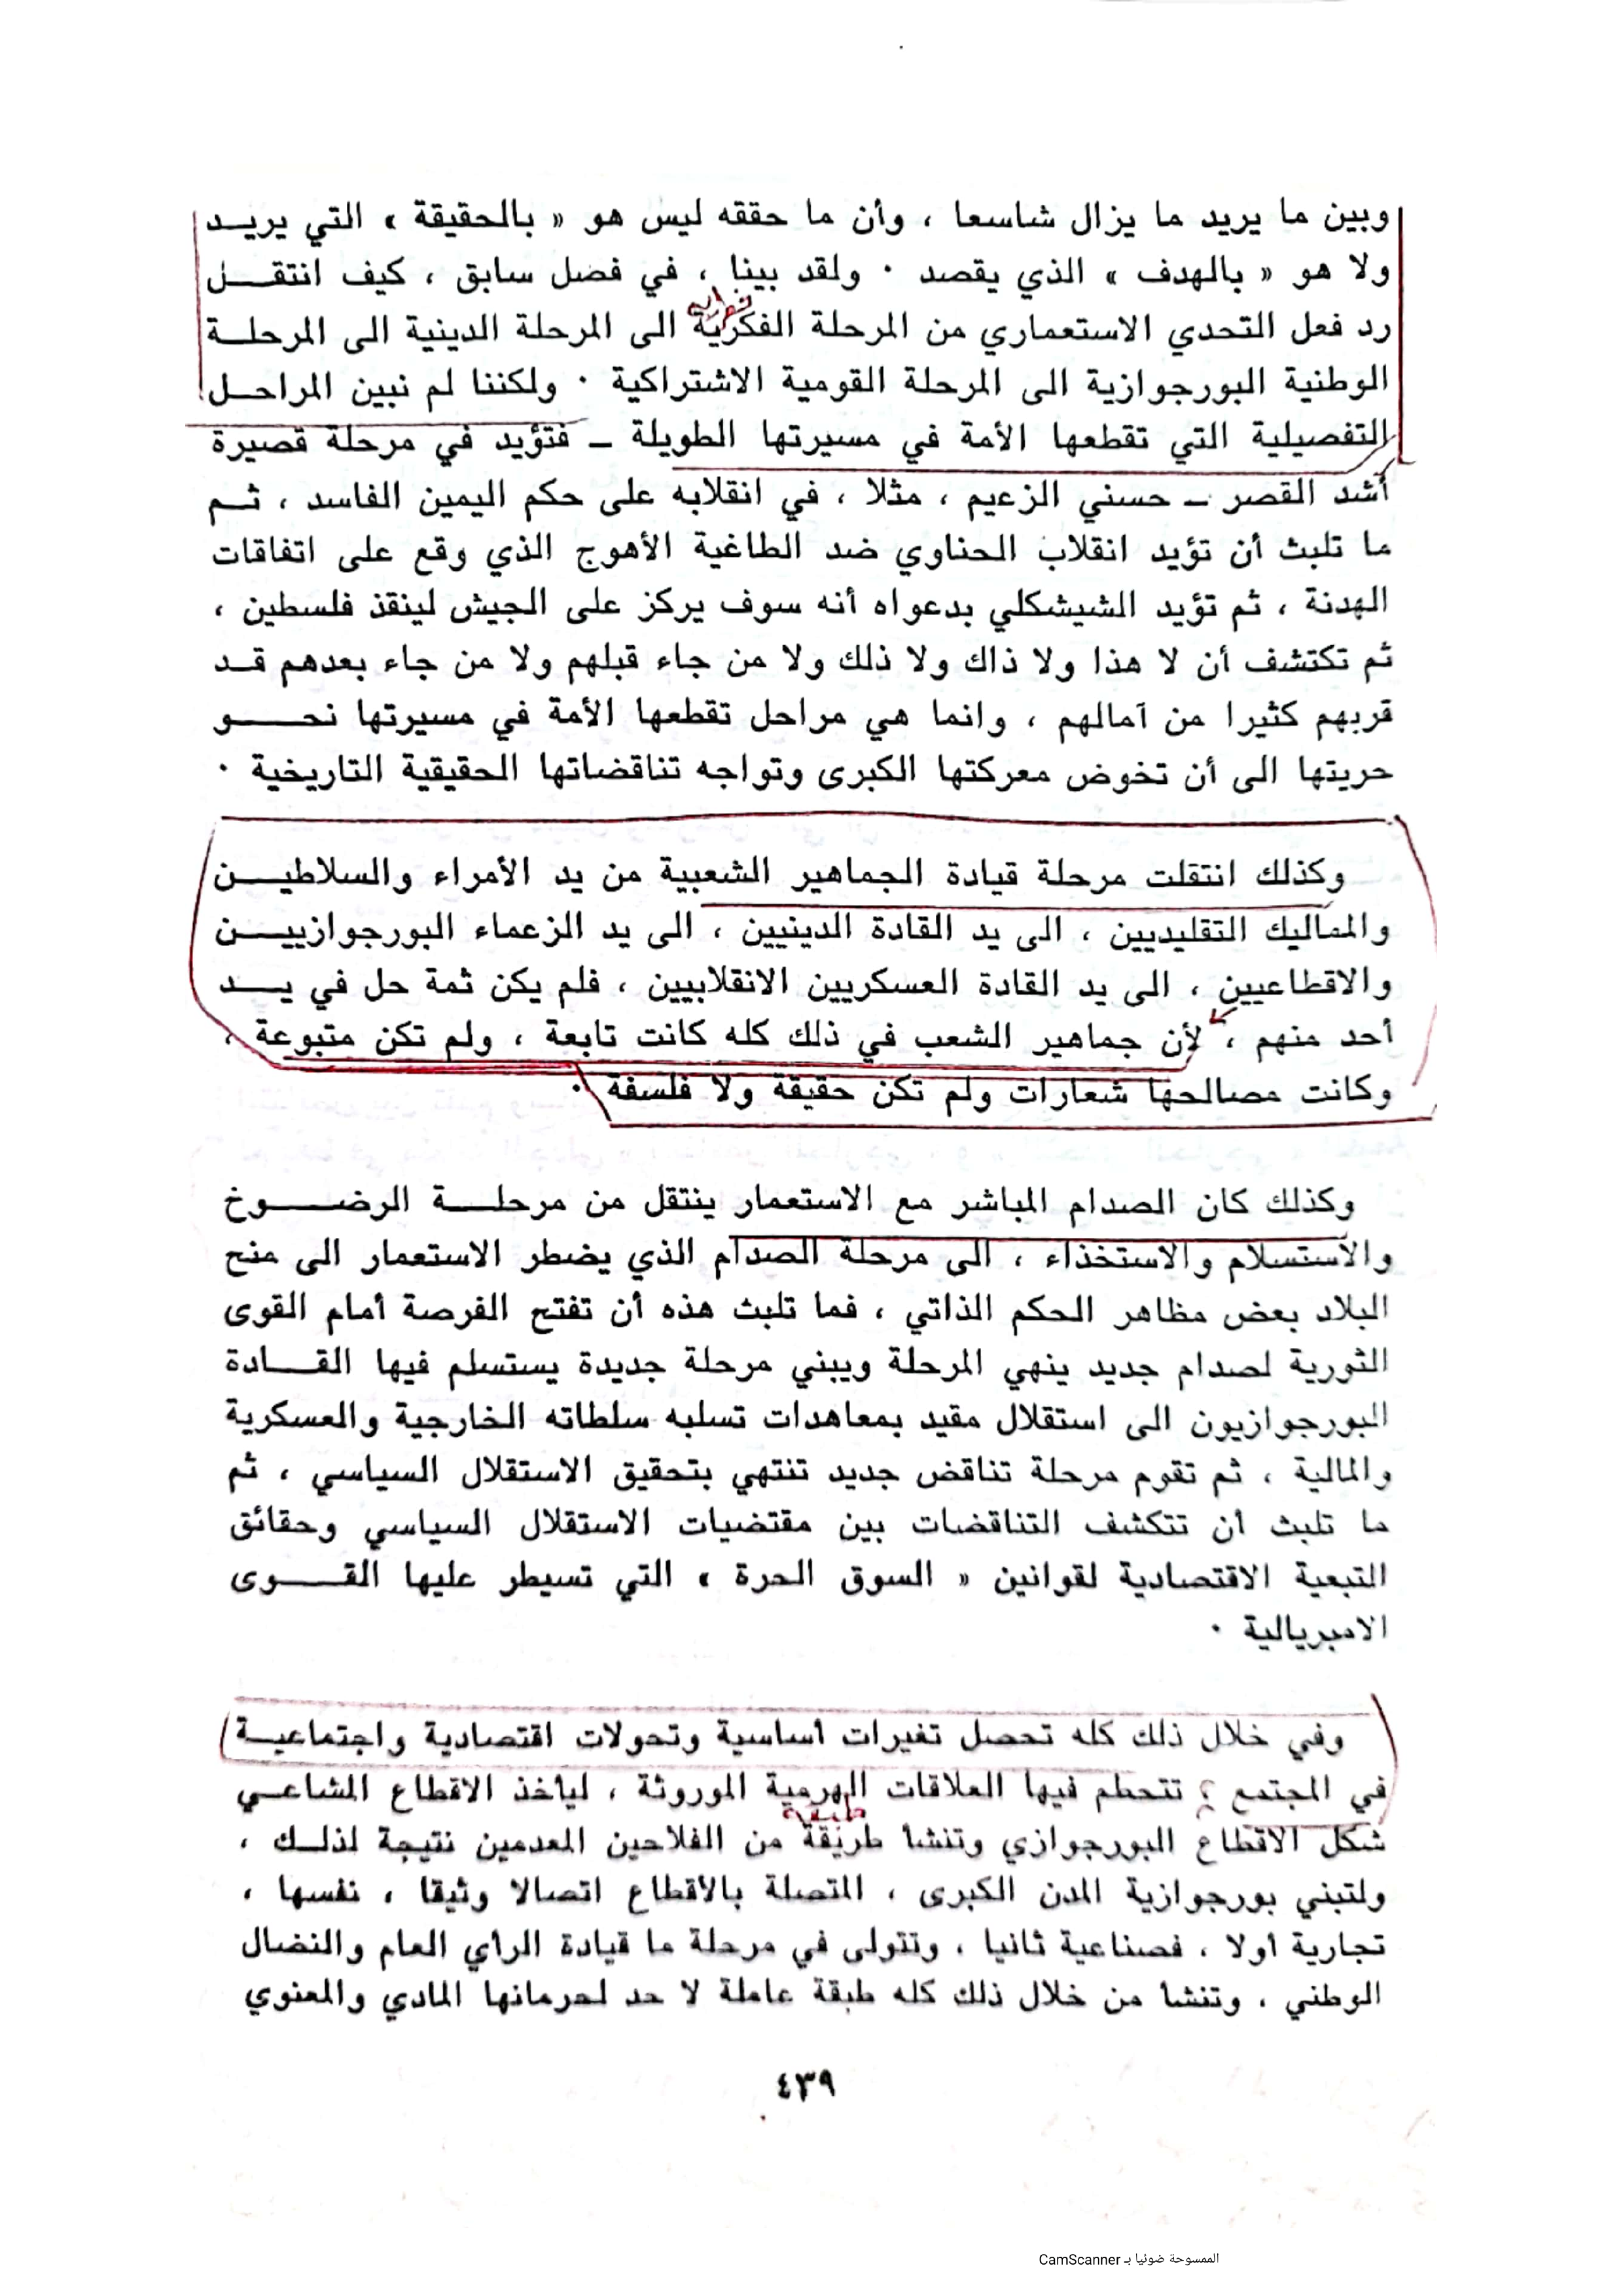 وبين ما يريد ما يزال شاسعا ، وأن ما حققه ليس هو « بالحقيقة » التي يريـد
ولا هو « بالهدف » الذي يقصد . ولقد بينا ، في فصل سابق ، كيف انتقـــل
رد فعل التحدي الاستعماري من المرحلة الفكرية الى المرحلة الدينية الى المرحلـة
الوطنية البورجوازية الى المرحلة القومية الاشتراكية . ولكننا لم نبين المراحـل
التفصيلية التي تقطعها الأمة في مسيرتها الطويلة ــ فتؤيد في مرحلة قصيرة
أشد القصر ــ حسني الزعيم ، مثلا ، في انقلابه على حكم اليمين الفاسد ، ثـم
ما تلبث أن تؤيد انقلاب الحناوي ضد الطاغية الأهوج الذي وقع على اتفاقات
الهدنة ، ثم تؤيد الشيشكلي بدعواه أنه سوف يركز على الجيش لينقذ فلسطين ،
ثم تكتشف أن لا هذا ولا ذاك ولا ذلك ولا من جاء قبلهم ولا من جاء بعدهم قـد
قربهم كثيرا من آمالهم ، وانما هي مراحل تقطعها الأمة في مسيرتها نحــــو
حريتها الى أن تخوض معركتها الكبرى وتواجه تناقضاتها الحقيقية التاريخية .
وكذلك انتقلت مرحلة قيادة الجماهير الشعبية من يد الأمراء والسلاطيـــن
والمماليك التقليديين ، الى يد القادة الدينيين ، الى يد الزعماء البورجوازييـــن
والاقطاعيين ، الى يد القادة العسكريين الانقلابيين ، فلم يكن ثمة حل في يـــد
أحد منهم ، لأن جماهير الشعب في ذلك كله كانت تابعة ، ولم تكن متبوعة ،
وكانت مصالحها شعارات ولم تكن حقيقة ولا فلسفة .
وكذلك كان الصدام المباشر مع الاستعمار ينتقل من مرحلـــة الرضـــوخ
والاستسلام والاستخذاء ، الى مرحلة الصدام الذي يضطر الاستعمار الى منح
البلاد بعض مظاهر الحكم الذاتي ، فما تلبث هذه أن تفتح الفرصة أمام القوى
الثورية لصدام جديد ينهي المرحلة ويبني مرحلة جديدة يستسلم فيها القـــادة
البورجوازيون الى استقلال مقيد بمعاهدات تسلبه سلطاته الخارجية والعسكرية
والمالية ، ثم تقوم مرحلة تناقض جديد تنتهي بتحقيق الاستقلال السياسي ، ثم
ما تلبث أن تتكشف التناقضات بين مقتضيات الاستقلال السياسي وحقائق
التبعية الاقتصادية لقوانين « السوق الحرة » التي تسيطر عليها القـــوى
الامبريالية .
وفي خلال ذلك كله تحصل تغيرات أساسية وتحولات اقتصادية واجتماعيـة
في المجتمع ؛ تتحطم فيها العلاقات الهرمية الموروثة ، ليأخذ الاقطاع المشاعـي
طبقة
شكل الاقطاع البورجوازي وتنشأ طريقة من الفلاحين المعدمين نتيجة لذلـك ،
ولتبني بورجوازية المدن الكبرى ، المتصلة بالاقطاع اتصالا وثيقا ، نفسها ،
تجارية أولا ، فصناعية ثانيا ، وتتولى في مرحلة ما قيادة الرأي العام والنضال
الوطني ، وتنشأ من خلال ذلك كله طبقة عاملة لا حد لحرمانها المادي والمعنوي
٤٣٩
الممسوحة ضوئيا بـ CamScanner